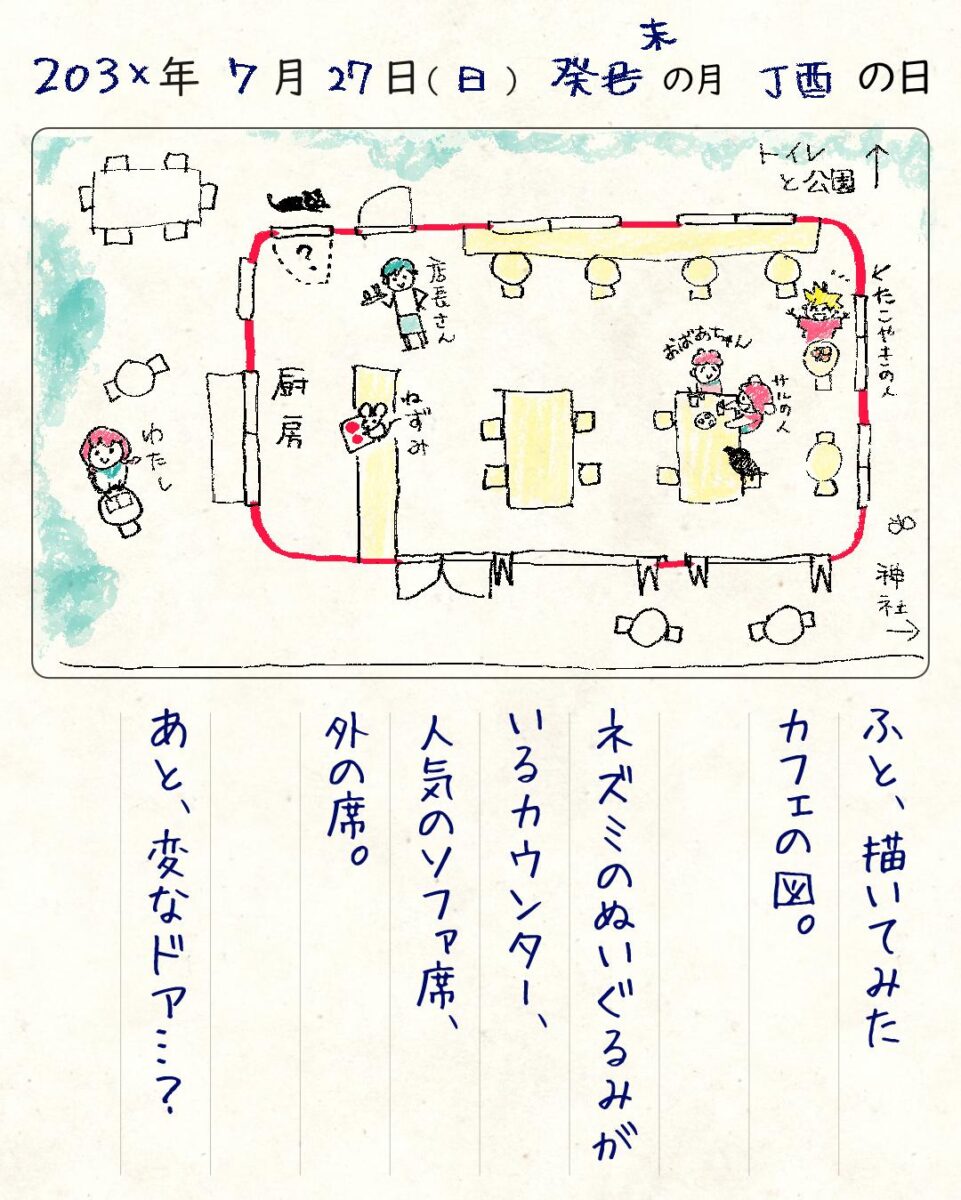 203x年 7月27日(日) 癸未の月 丁酉の日
トイレ
と公園
↑
?
店長さん
←たこやきの人
おばあちゃん
サルの人
厨房
ねずみ
わたし
神社
→
ふと、描いてみた
カフェの図。
ネズミのぬいぐるみが
いるカウンター、
人気のソファ席、
外の席。
あと、変なドア…?